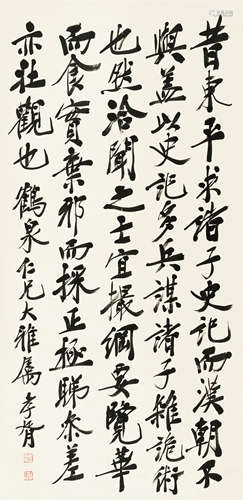 昔東平求諸子史記而漢朝不
與蓋以史記多兵謀諸子雜詭術
也然洽聞之士宜撮綱要覽華
而食實棄邪而採正極睇參差
亦壯觀也鶴泉仁兄大雅屬孝胥